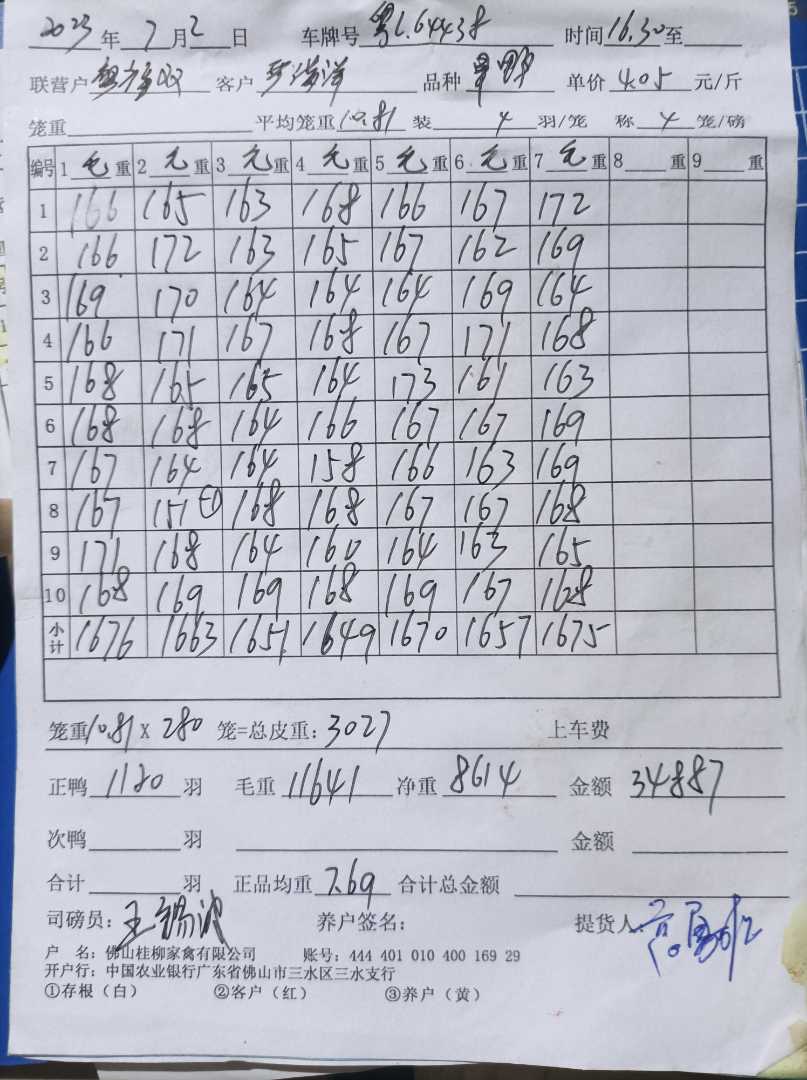 2023年 7月2日 车牌号 粤L.64438 时间16.30至
联营户 客户 品种 单价 4.05 元/斤
笼重 平均笼重10.81 装 4 羽/笼 称 4 笼/磅
编号 1 毛 重 2 毛 重 3 毛 重 4 毛 重 5 毛 重 6 毛 重 7 毛 重 8 重 9 重
1 166 165 163 168 166 167 172
2 166 172 163 165 167 162 169
3 169 170 164 164 164 169 164
4 166 171 167 168 167 171 168
5 168 165 165 164 173 161 163
6 168 168 164 166 167 167 169
7 167 164 164 158 166 163 169
8 167 151 168 168 167 167 168
9 171 168 164 160 164 163 165
10 168 169 169 168 169 167 168
小计 1676 1663 1651 1649 1670 1657 1675
笼重10.81 X 280 笼=总皮重:3027 上车费
正鸭 1120 羽 毛重 11641 净重 8614 金额 34887
次鸭 羽 金额
合计 羽 正品均重 7.69 合计总金额
司磅员:王锡波 养户签名: 提货人:
户 名:佛山桂柳家禽有限公司 账号:444 401 010 400 169 29
开户行:中国农业银行广东省佛山市三水区三水支行
①存根(白) ②客户(红) ③养户(黄)